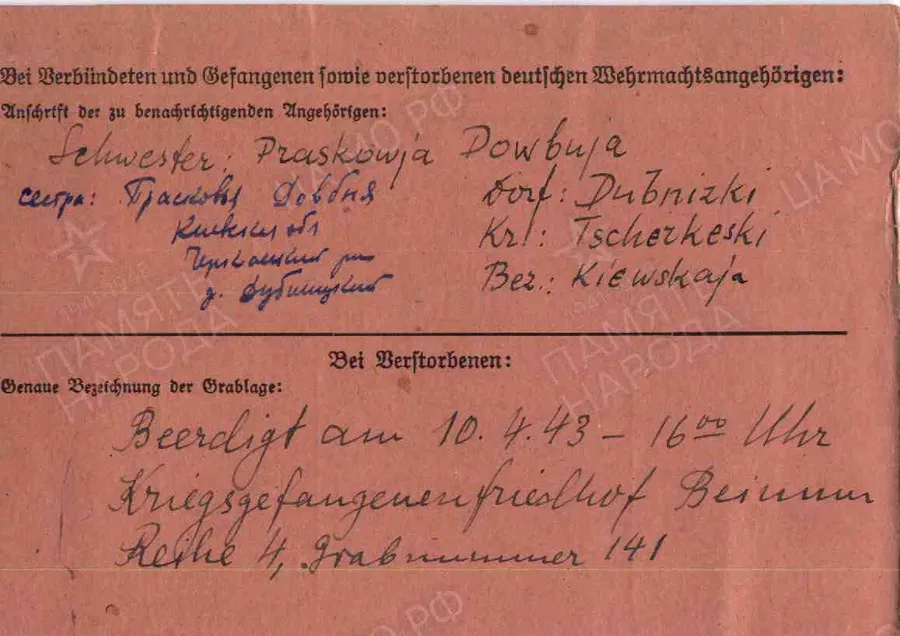 Bei Verbündeten und Gefangenen sowie verstorbenen deutschen Wehrmachtsangehörigen:
Anschrift der zu benachrichtigenden Angehörigen:
Schwester: Praskowja Dowbuja
сестра: Прасковья Довбня
Dorf: Dubnizki
Киевская обл
Kr.: Tscherkeski
Черкасский
д. Дубницкий
Bez.: Kiewskaja
Bei Verstorbenen:
Genaue Bezeichnung der Grablage:
Beerdigt am 10.4.43 - 16⁰⁰ Uhr
Kriegsgefangenenfriedhof
Reihe 4, Grabnummer 141
ПАМЯТЬ НАРОДА
ПАМЯТЬ НАРОДА
ЦА МО РФ
ЦА МО
МО РФ